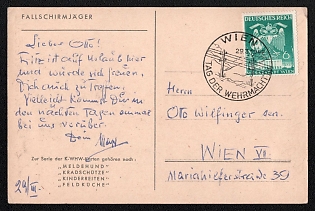 FALLSCHIRMJÄGER
Lieber Otto!
Fritz ist auf Urlaub hier
und würde sich freuen,
Dich auch zu treffen.
Vielleicht kommst Du in
den nächsten Tagen einmal
bei uns vorüber.
Dein
Zur Serie der K-WHW-Karten gehören noch:
MELDEHUND
KRADSCHÜTZE
KINDERREITEN
FELDKÜCHE
DEUTSCHES REICH
WIEN
TAG DER WEHRMACHT
Herrn
Otto Wilfinger sen.
WIEN VII.
Mariahilferstraße 39